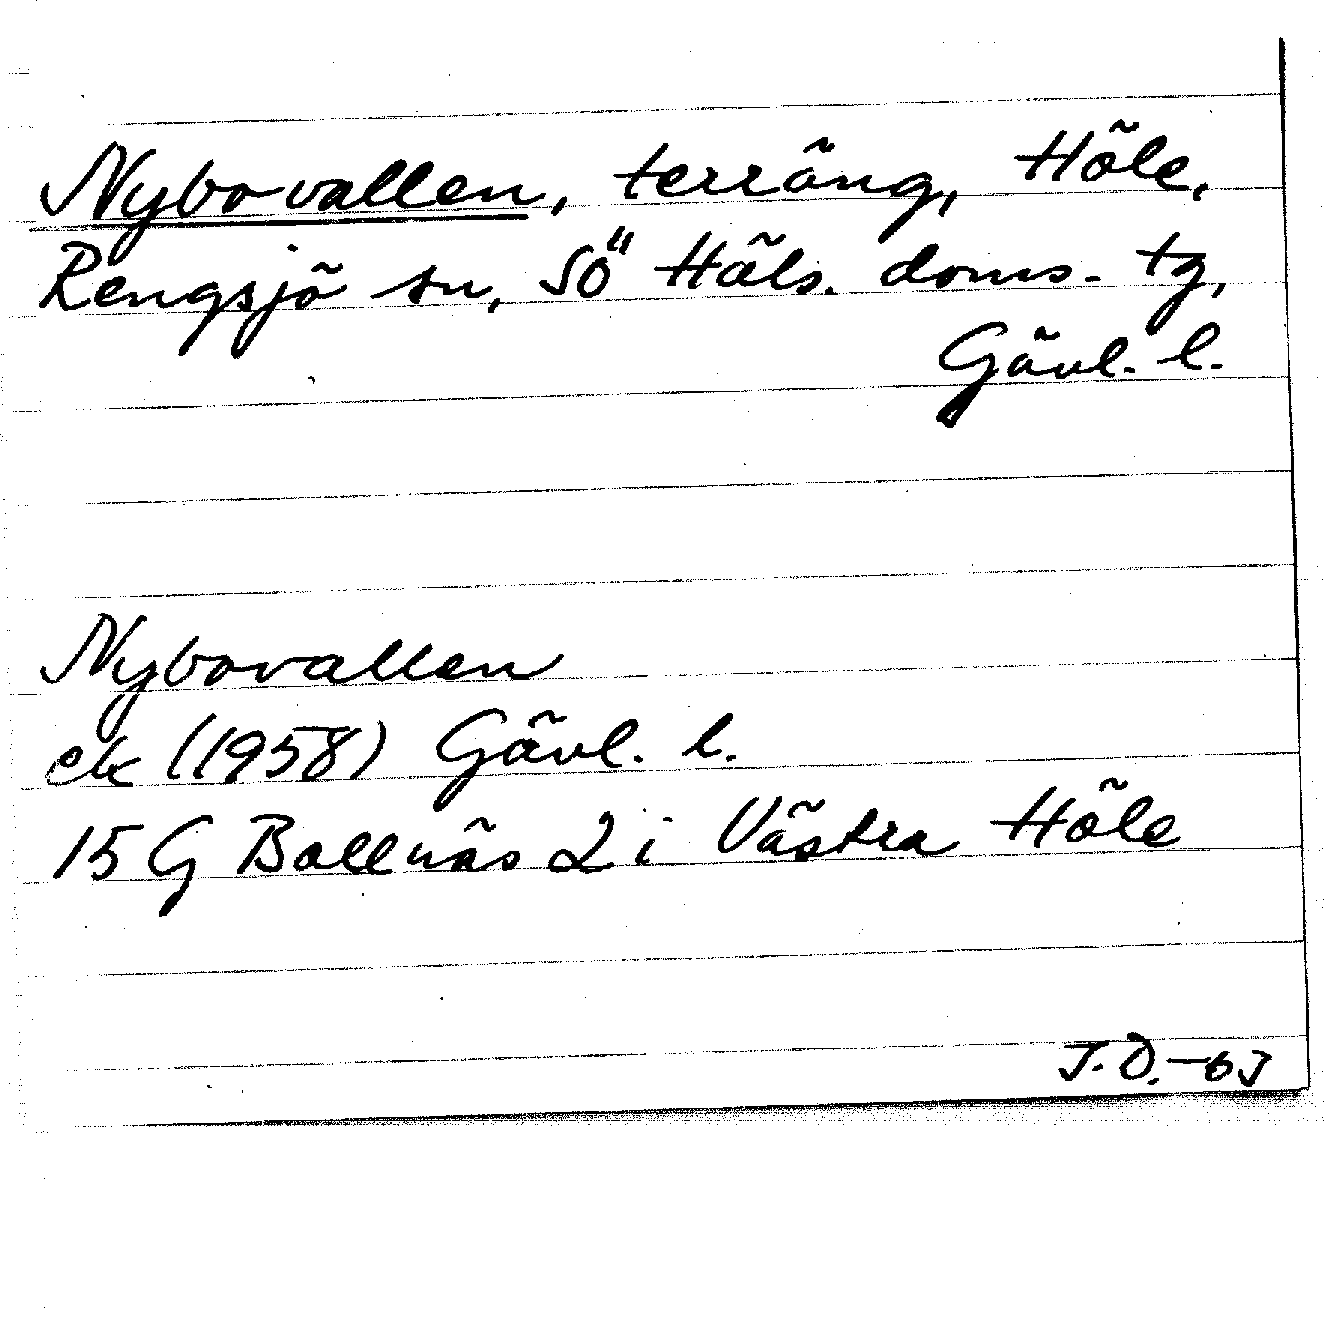 Nybovallen, terräng, Höle,
Rengsjö sn, SÖ Häls. doms. tg,
Gävl. l.
Nybovallen
ek (1958) Gävl. l.
15 G Bollnäs 2 i Västra Höle
J.Ö.-63